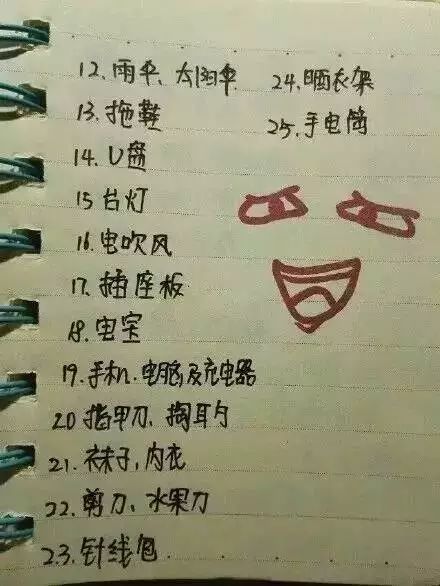 12、雨伞、太阳伞
13、拖鞋
14、U盘
15 台灯
16、电吹风
17、插座板
18、电宝
19、手机、电脑及充电器
20 指甲刀、掏耳勺
21、袜子、内衣
22、剪刀、水果刀
23、针线包
24、晒衣架
25、手电筒